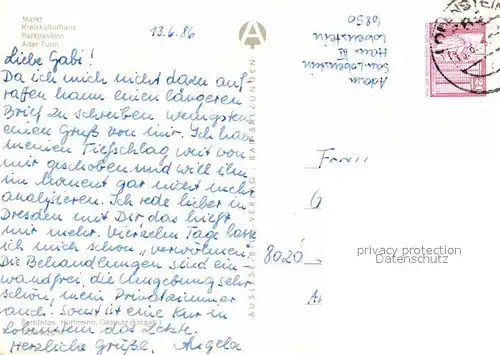 Markt
Kreiskulturhaus
Parkpavillon
Alter Turm
13.6.86
Liebe Gabi!
Da ich mich nicht dazu auf-
raffen kann einen längeren
Brief zu schreiben wenigstens
einen Gruß von mir. Ich habe
meinen Tiefschlag weit von
mir geschoben und will ihn
im Moment gar nicht mehr
analysieren. Ich rede lieber in
Dresden mit Dir, das bringt
mir mehr. Vierzehn Tage lasse
ich mich schon „verwöhnen".
Die Behandlungen sind ein-
wandfrei, die Umgebung sehr
schön, mein Privatzimmer
auch. Sonst ist eine Kur in
Lobenstein das Letzte.
Herzliche Grüße, Angela
Farbfotos: Hoffmann, Oelsnitz (Erzgeb.)
AUSLESE-BILD-VERLAG · BAD SALZUNGEN
Adam
San. Lobenstein
Haus III
Lobenstein
6850
LOBENSTEIN
Frau
8020
privacy protection
Datenschutz